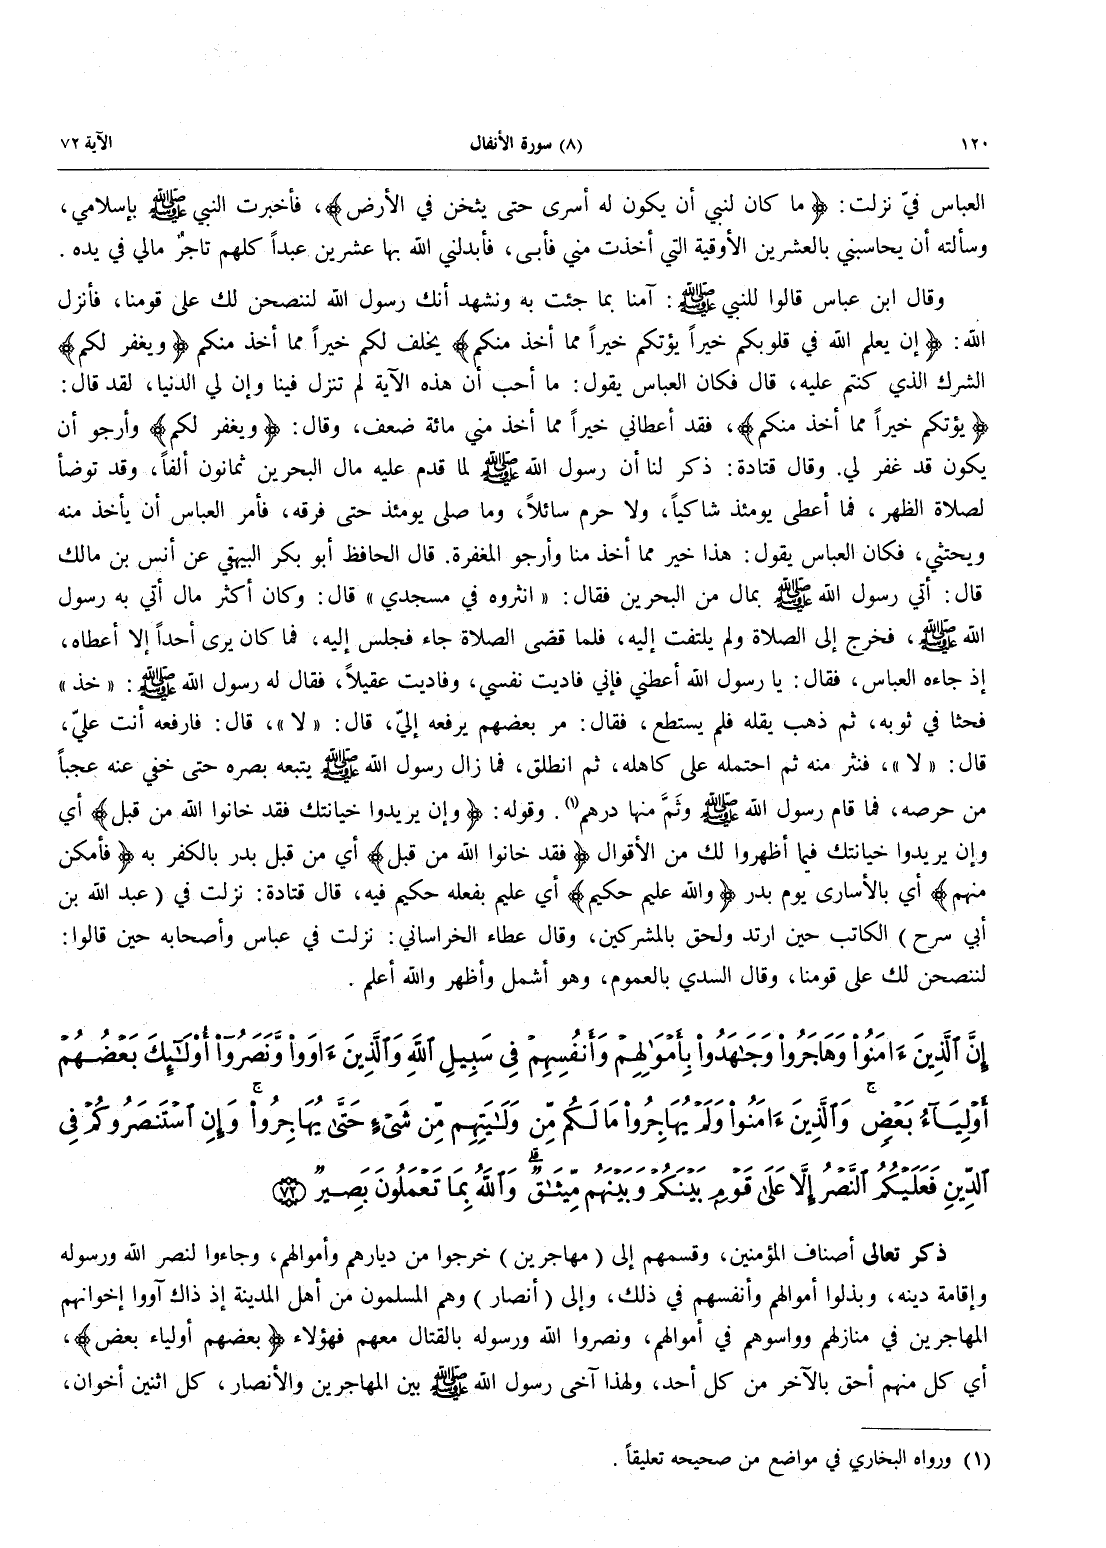 ١٢٠ (٨) سورة الأنفال الآية ٧٢
العباس فيّ نزلت: ﴿ما كان لنبي أن يكون له أسرى حتى يثخن في الأرض﴾، فأخبرت النبي ﷺ بإسلامي،
وسألته أن يحاسبني بالعشرين الأوقية التي أخذت مني فأبى، فأبدلني الله بها عشرين عبداً كلهم تاجرٌ مالي في يده.
وقال ابن عباس قالوا للنبي ﷺ: آمنا بما جئت به ونشهد أنك رسول الله لننصحن لك على قومنا، فأنزل
الله: ﴿إن يعلم الله في قلوبكم خيراً يؤتكم خيراً مما أخذ منكم﴾ يخلف لكم خيراً مما أخذ منكم ﴿ويغفر لكم﴾
الشرك الذي كنتم عليه، قال فكان العباس يقول: ما أحب أن هذه الآية لم تنزل فينا وإن لي الدنيا، لقد قال:
﴿يؤتكم خيراً مما أخذ منكم﴾، فقد أعطاني خيراً مما أخذ مني مائة ضعف، وقال: ﴿ويغفر لكم﴾ وأرجو أن
يكون قد غفر لي. وقال قتادة: ذكر لنا أن رسول الله ﷺ لما قدم عليه مال البحرين ثمانون ألفاً، وقد توضأ
لصلاة الظهر، فما أعطى يومئذ شاكياً، ولا حرم سائلاً، وما صلى يومئذ حتى فرقه، فأمر العباس أن يأخذ منه
ويحتثي، فكان العباس يقول: هذا خير مما أخذ منا وأرجو المغفرة. قال الحافظ أبو بكر البيهقي عن أنس بن مالك
قال: أتي رسول الله ﷺ بمال من البحرين فقال: «انثروه في مسجدي» قال: وكان أكثر مال أتي به رسول
الله ﷺ، فخرج إلى الصلاة ولم يلتفت إليه، فلما قضى الصلاة جاء فجلس إليه، فما كان يرى أحداً إلا أعطاه،
إذ جاءه العباس، فقال: يا رسول الله أعطني فإني فاديت نفسي، وفاديت عقيلاً، فقال له رسول الله ﷺ: «خذ»
فحثا في ثوبه، ثم ذهب يقله فلم يستطع، فقال: مر بعضهم يرفعه إليّ، قال: «لا»، قال: فارفعه أنت عليّ،
قال: «لا»، فنثر منه ثم احتمله على كاهله، ثم انطلق، فما زال رسول الله ﷺ يتبعه بصره حتى خفي عنه عجباً
من حرصه، فما قام رسول الله ﷺ وثَمَّ منها درهم(١). وقوله: ﴿وإن يريدوا خيانتك فقد خانوا الله من قبل﴾ أي
وإن يريدوا خيانتك فيما أظهروا لك من الأقوال ﴿فقد خانوا الله من قبل﴾ أي من قبل بدر بالكفر به ﴿فأمكن
منهم﴾ أي بالأسارى يوم بدر ﴿والله عليم حكيم﴾ أي عليم بفعله حكيم فيه، قال قتادة: نزلت في (عبد الله بن
أبي سرح) الكاتب حين ارتد ولحق بالمشركين، وقال عطاء الخراساني: نزلت في عباس وأصحابه حين قالوا:
لننصحن لك على قومنا، وقال السدي بالعموم، وهو أشمل وأظهر والله أعلم.
إِنَّ ٱلَّذِينَ ءَامَنُوا۟ وَهَاجَرُوا۟ وَجَـٰهَدُوا۟ بِأَمْوَٰلِهِمْ وَأَنفُسِهِمْ فِى سَبِيلِ ٱللَّهِ وَٱلَّذِينَ ءَاوَوا۟ وَّنَصَرُوٓا۟ أُو۟لَـٰٓئِكَ بَعْضُهُمْ
أَوْلِيَآءُ بَعْضٍ ۚ وَٱلَّذِينَ ءَامَنُوا۟ وَلَمْ يُهَاجِرُوا۟ مَا لَكُم مِّن وَلَـٰيَتِهِم مِّن شَىْءٍ حَتَّىٰ يُهَاجِرُوا۟ ۚ وَإِنِ ٱسْتَنصَرُوكُمْ فِى
ٱلدِّينِ فَعَلَيْكُمُ ٱلنَّصْرُ إِلَّا عَلَىٰ قَوْمٍۭ بَيْنَكُمْ وَبَيْنَهُم مِّيثَـٰقٌ ۗ وَٱللَّهُ بِمَا تَعْمَلُونَ بَصِيرٌ ﴿٧٢﴾
ذكر تعالى أصناف المؤمنين، وقسمهم إلى (مهاجرين) خرجوا من ديارهم وأموالهم، وجاءوا لنصر الله ورسوله
وإقامة دينه، وبذلوا أموالهم وأنفسهم في ذلك، وإلى (أنصار) وهم المسلمون من أهل المدينة إذ ذاك آووا إخوانهم
المهاجرين في منازلهم وواسوهم في أموالهم، ونصروا الله ورسوله بالقتال معهم فهؤلاء ﴿بعضهم أولياء بعض﴾،
أي كل منهم أحق بالآخر من كل أحد، ولهذا آخى رسول الله ﷺ بين المهاجرين والأنصار، كل اثنين أخوان،
(١) ورواه البخاري في مواضع من صحيحه تعليقاً.